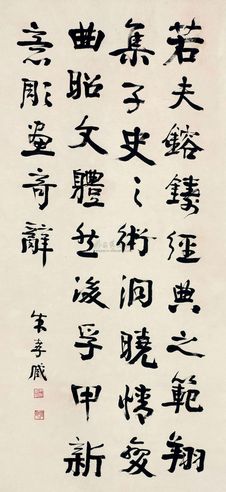 若夫鎔鑄經典之範翔
集子史之術洞曉情變
曲昭文體然後孚甲新
意彫畫奇辭
朱孝臧